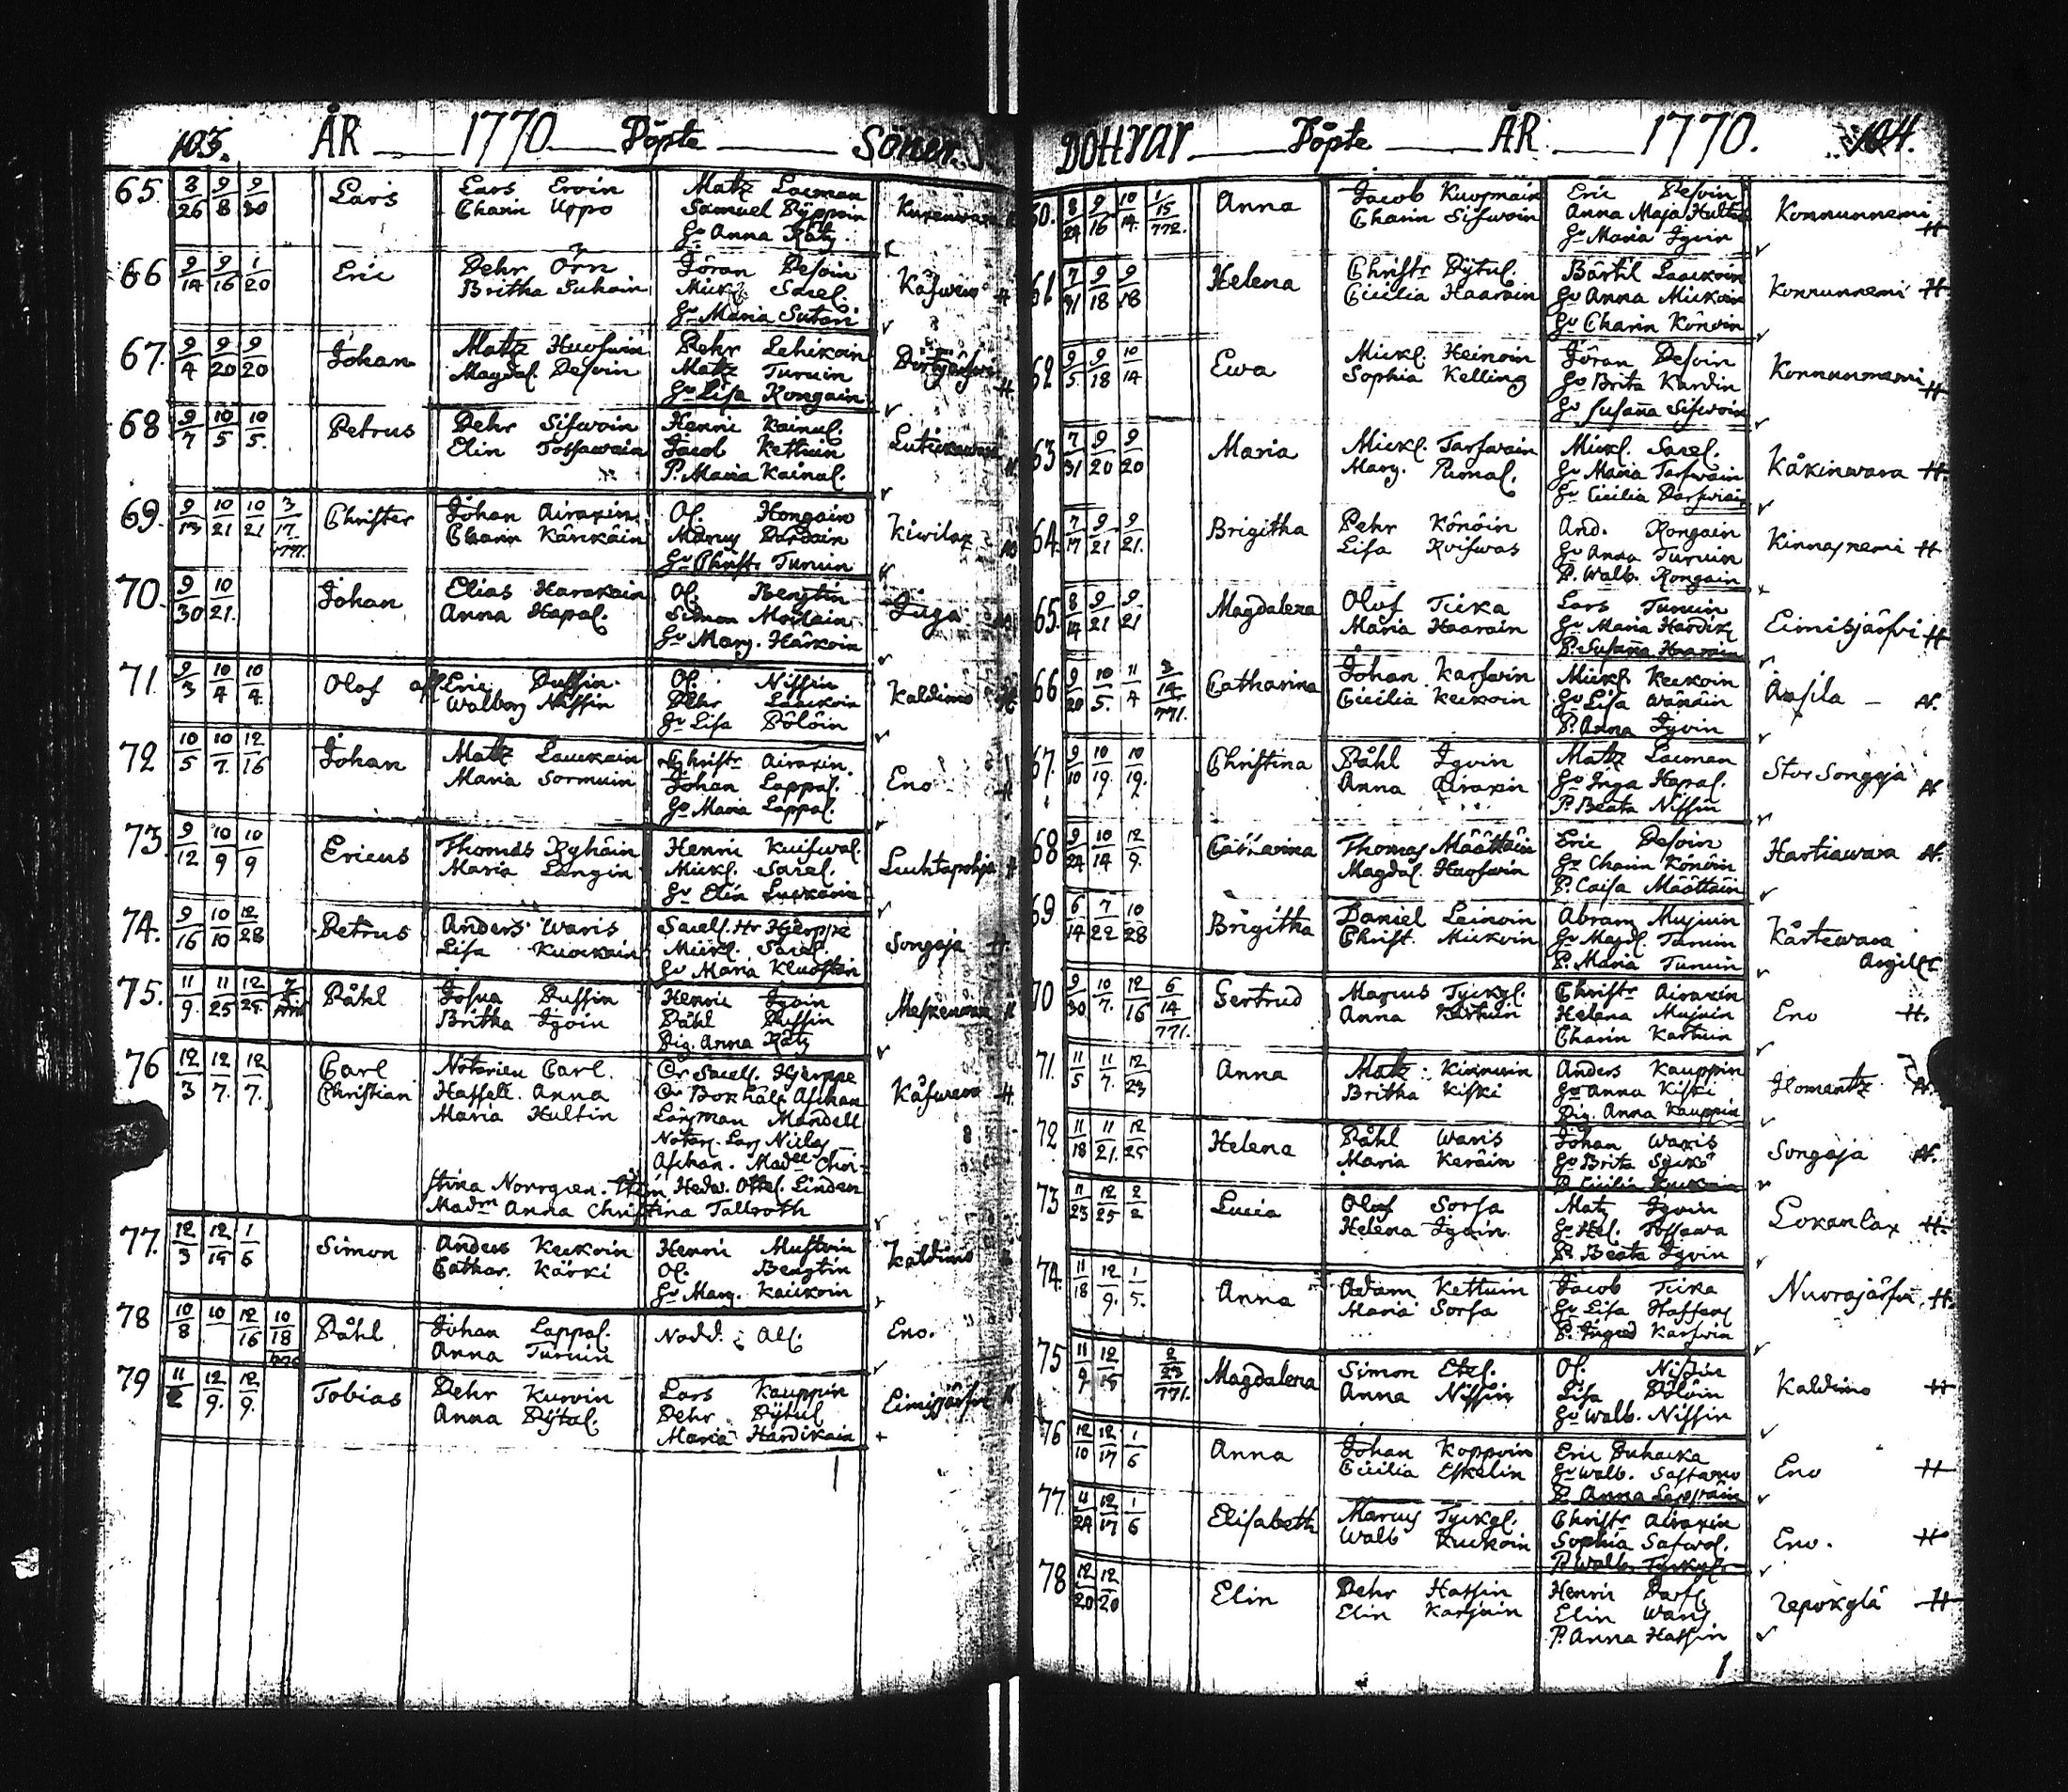 103. ÅR 1770 Döpte Söner.
65. 8/26 9/8 9/30 Lars
Lars Ervin
Charin Uppo
Matz Lacman
Samuel Pÿppoin
Gv Anna Rätz
66 9/14 9/16 1/20 Eric
Pehr Örn
Britha Suhoin
Jöran Pesoin
Mick. Sarel.
Gv Maria Sutari
67. 9/4 9/20 9/20 Johan
Matz Huoswin
Magdal Pesoin
Pehr Lehikoin
Matz Turuin
Gv Lisa Rongain
68 9/7 10/5 10/5. Petrus
Pehr Sifwoin
Elin Tossawain
Henric Kainul.
Jacob Kettuin
P. Maria Kainul.
69. 9/13 10/21 10/21 3/17 1771. Christer
Johan Airaxin
Charin Kärikäin
Ol. Hongain
Marcus Pardain
Gv Christ. Turuin
Kivilax
70. 9/30 10/21. Johan
Elias Harakain
Anna Hapal.
Ol. Bengtin
Simon Moilain
Gv Marg. Härkoin
Juga
71. 9/3 10/4 10/4. Olof
Eric Pussin
Walborg Nissin
Ol. Nissin
Pehr Laackoin
Gv Lisa Pölöin
Kaldimo H
72 10/5 10/7. 12/16 Johan
Matz Lauckain
Maria Sormuin
Christr Airaxin.
Johan Lappal.
Gv Maria Lappal.
Eno H
73. 9/12 10/9 10/9 Ericus
Thomas Ryhäin
Maria Langin
Henric Kuiswal
Mickl. Sarel.
Gv Elin
Luchtapohja H
74. 9/16 10/10 12/28 Petrus
Anders Waris
Lisa Kuockain
Sacell. Hr Hjerppe
Mickl. Sarel.
Gv Maria
Songaja H.
75. 11/9. 11/25 12/25. Påhl
Josua Pussin
Britha Igoin
Henric Igoin
Påhl Pussin
Pig. Anna Rätz
76 12/3 12/7. 12/7. Carl
Christian
Notarien Carl.
Hassell. Anna
Maria Hultin
Cr Sacell. Hjerppe
Cr Bokhåll Aschan
Länsman Mandell
Notar. Lars Niclas
Aschan. Madll Chri-
stina Norrgren. Item Hedv. Ottel. Linden
Madm Anna Christina Tallroth
Kåfwero H
77. 12/3 12/14 1/6 Simon
Anders Keckoin
Cathar. Kärki
Henric Mustoin
Ol. Bengtin
Gv Marg. Kaukoin
Kaldimo
78 10/8 10 12/16 10/18 Påhl
Johan Lappal.
Anna Turuin
Nödd. All.
Eno.
79 11 12/9. 12/9. Tobias
Pehr Kurvin
Anna Pÿtal.
Lars Kauppin
Pehr Pÿtul
Maria Hardikain
Eimisjärfvi
Döttrar Döpte ÅR 1770. 104.
60. 8/24 9/16 10/14. 1/15 772. Anna
Jacob Kuosmain
Charin Sifwoin
Eric Pesoin
Anna Maja Hultin
Gv Maria Igoin
Konnunnemi H
61 7/31 9/18 9/18 Helena
Christr Pÿtul.
Cicilia Haarain
Bärtil Laackoin
Gv Anna Mickoin
Gv Charin Könöin
Konnunnemi H
62 9/5. 9/18 10/14 Ewa
Mickl. Heinoin
Sophia Kelling
Jöran Pesoin
Gv Brita Kardin
Gv Susana Sifwoin
Konnunnemi H
63 7/31 9/20 9/20 Maria
Mickl. Tarfwain
Marg. Pumal.
Mickl. Sarel.
Gv Maria Tarfwain
Gv Cicilia Parfwiain
Kåkinwara H.
64. 7/17 9/21 9/21. Brigitha
Pehr Könöin
Lisa Roifwas
And. Rongain
Gv Anna Turuin
P. Walb. Rongain
Kinnasnemi H
65. 8/14 9/21 9/21 Magdalena
Olof Ticka
Maria Haarain
Lars Turuin
Gv Maria Hardik
P. Susana Haarain
Eimisjärfvi H
66 9/20 10/5. 11/4 3/14 771. Catharina
Johan Karfwin
Cicilia Keckoin
Mickl Keckoin
Gv Lisa Wänäin
P. Anna Igvin
Åasila N.
67. 9/10 10/19. 10/19. Christina
Påhl Igvin
Anna Airaxin
Matz Lacman
Gv Inga Hapal.
P. Beata Nissin
Stor Songaja N
68 9/24 10/14 12/9. Catharina
Thomas Määttäin
Magdal. Huoswin
Eric Pesoin
Gv Charin Könöin
P. Caisa Määttäin
Hartiawara N.
69 6/14 7/22 10/28 Brigitha
Daniel Leinoin
Christ. Mickoin
Abram Mujuin
Gv Magdl. Turuin
P. Maria Turuin
Kårtewara
70 9/30 10/7. 12/16 6/14 771. Gertrud
Marcus Tyckyl.
Anna Kartuin
Christr Airaxin
Helena Mujuin
Charin Kartuin
Eno H.
71. 11/5 11/7. 12/23 Anna
Matz Kinnuin
Britha Kiski
Anders Kauppin
Gv Anna Kiski
Pig. Anna Kauppin
Ilomantz N.
72 11/18 11/21. 12/25 Helena
Påhl Waris
Maria Keräin
Johan Waris
Gv Brita Sÿckö
Songaja N.
73 11/23 12/25 2/2 Lucia
Olof Sorsa
Helena Igoin
Matz Igvin
Gv Hel. Tossawa
P. Beata Igvin
Lokanlax H.
74. 11/18 12/9. 1/5. Anna
Adam Kettuin
Maria Sorsa
Jacob Ticka
Gv Lisa Hassan
P. Ingred Karfwin
Nuorajärfvi H.
75 11/9 12/15 2/23 771. Magdalena
Simon Etel.
Anna Nissin
Ol. Nissin
Lisa Pölöin
Gv Walb. Nissin
Kaldimo H
76 12/10 12/17 1/6 Anna
Johan Koppoin
Cicilia Eskelin
Eric Puhacka
Gv Walb. Sastamo
P. Anna
Eno H
77. 11/24 12/17 1/6 Elisabeth
Marcus Tyckyl.
Walb Kuckoin
Christr Airaxin
Sophia Safwol.
P. Walb. Tyckyl.
Eno. H
78 12/20 12/20 Elin
Pehr Hassin
Elin Karjuin
Henric Parf.
Elin Waris
P. Anna Hassin
repokylä H